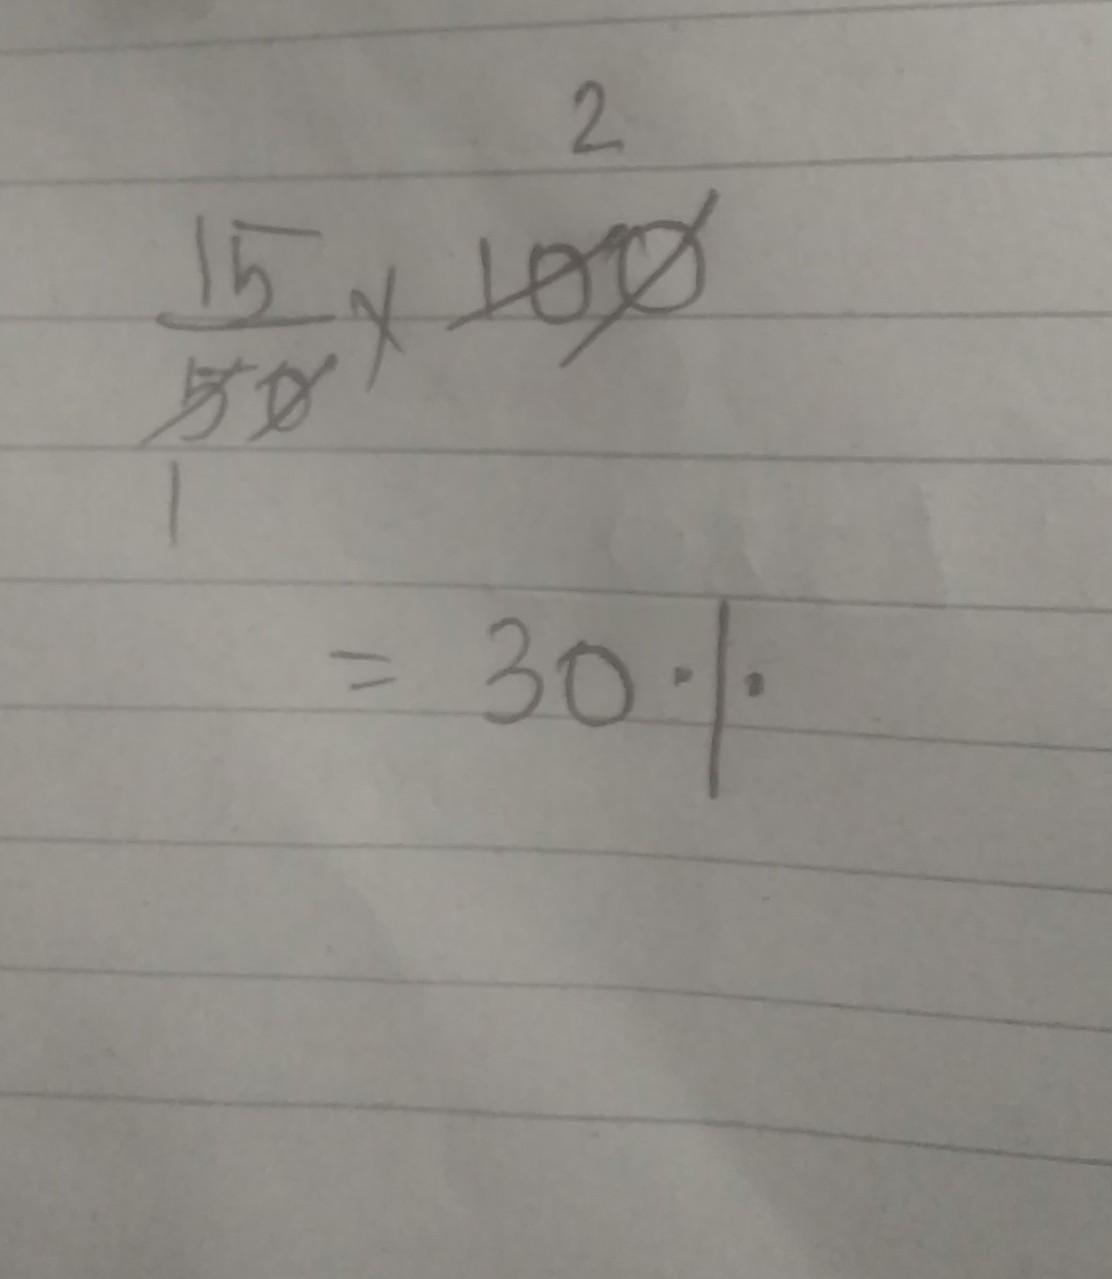 2
15/50 x 100
1
= 30 %